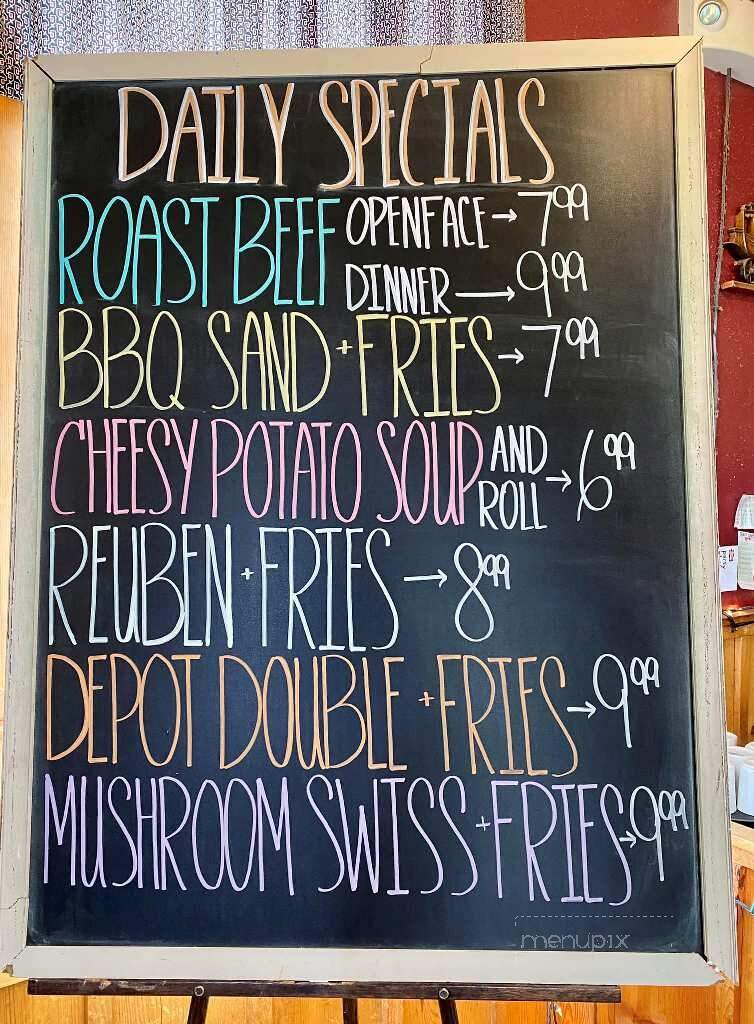 DAILY SPECIALS
ROAST BEEF OPENFACE → 7⁹⁹
DINNER → 9⁹⁹
BBQ SAND + FRIES → 7⁹⁹
CHEESY POTATO SOUP AND ROLL → 6⁹⁹
REUBEN + FRIES → 8⁹⁹
DEPOT DOUBLE + FRIES → 9⁹⁹
MUSHROOM SWISS + FRIES → 9⁹⁹
menupix